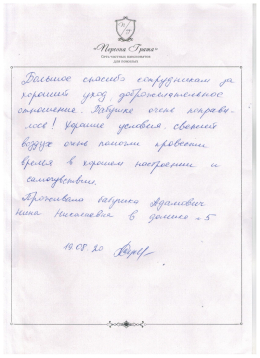 «Персона Грата»
Сеть частных пансионатов
для пожилых
Большое спасибо сотрудникам за
хороший уход, доброжелательное
отношение. Бабушке очень понрави-
лось! Хорошие условия, свежий
воздух очень помогли провести
время в хорошем настроении и
самочувствии.
Проживала бабушка Адамович
Нина Николаевна в домике 5
19.08.20